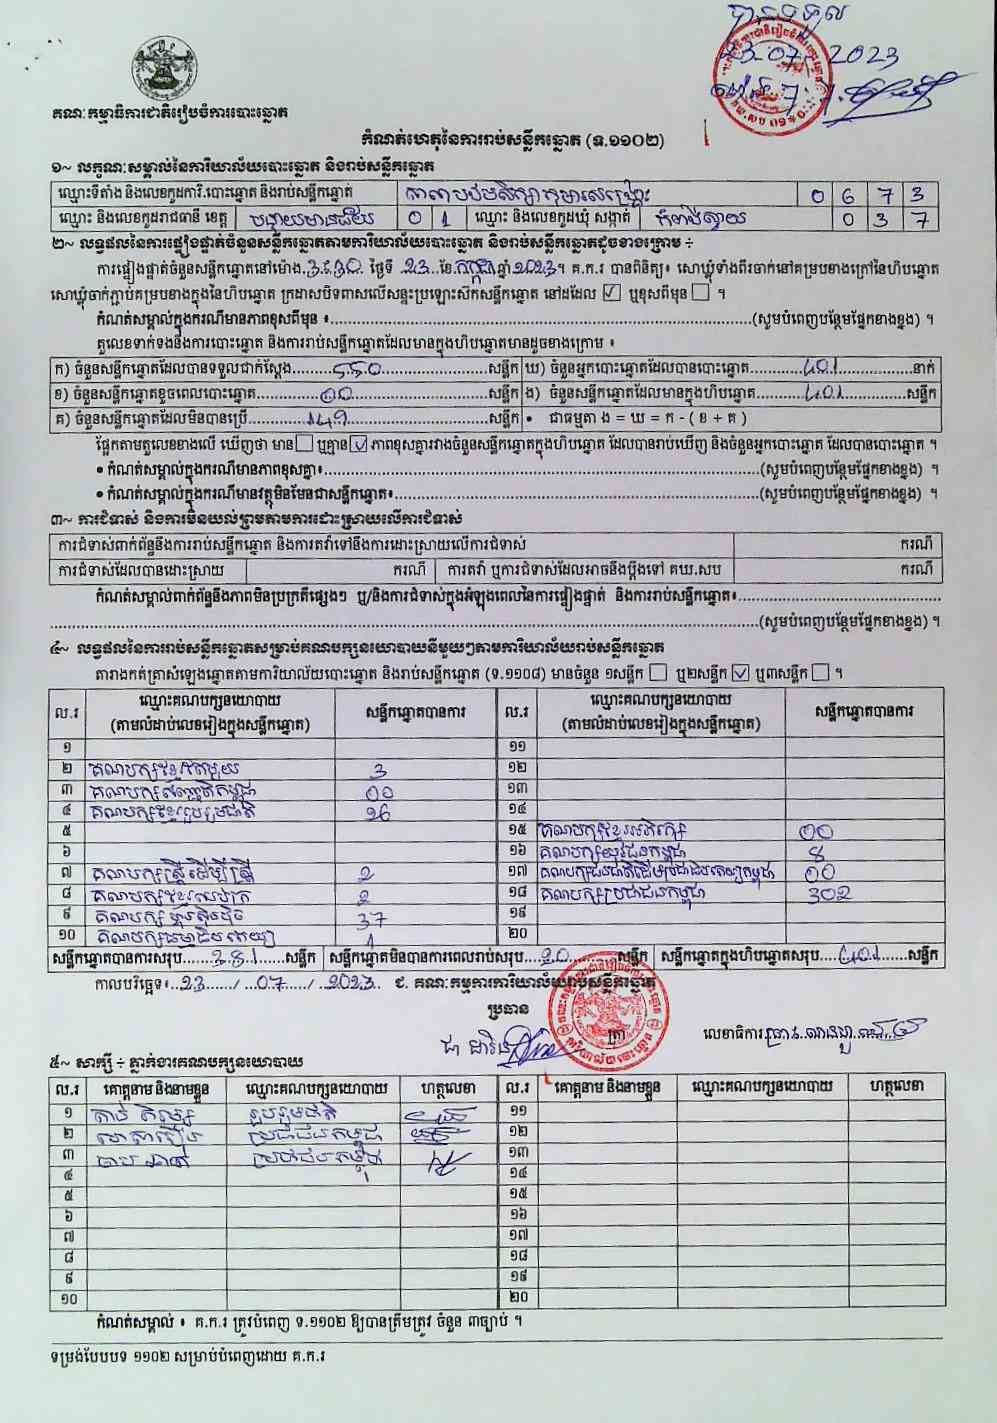 បានទទួល
23.07.2023
គណៈកម្មាធិការជាតិរៀបចំការបោះឆ្នោត
កំណត់ហេតុនៃការរាប់សន្លឹកឆ្នោត (ទ.១១០២)
១~ លក្ខណៈសម្គាល់នៃការិយាល័យបោះឆ្នោត និងរាប់សន្លឹកឆ្នោត
ឈ្មោះទីតាំង និងលេខកូដការិ.បោះឆ្នោត និងរាប់សន្លឹកឆ្នោត 0 6 7 3
ឈ្មោះ និងលេខកូដរាជធានី ខេត្ត បន្ទាយមានជ័យ 0 1 ឈ្មោះ និងលេខកូដឃុំ សង្កាត់ 0 3 7
២~ លទ្ធផលនៃការផ្ទៀងផ្ទាត់ចំនួនសន្លឹកឆ្នោតតាមការិយាល័យបោះឆ្នោត និងរាប់សន្លឹកឆ្នោតដូចខាងក្រោម ÷
ការផ្ទៀងផ្ទាត់ចំនួនសន្លឹកឆ្នោតនៅម៉ោង.3:30 ថ្ងៃទី 23 ខែ.កក្កដា ឆ្នាំ 2023។ គ.ក.រ បានពិនិត្យ៖ សោឃ្លុំទាំងពីរចាក់នៅគម្របខាងក្រៅនៃហិបឆ្នោត
សោឃ្លុំចាក់ភ្ជាប់គម្របខាងក្នុងនៃហិបឆ្នោត ក្រដាសបិទពាសលើសន្លះប្រឡោះសឹកសន្លឹកឆ្នោត នៅដដែល ☑ ឬខុសពីមុន ☐ ។
កំណត់សម្គាល់ក្នុងករណីមានភាពខុសពីមុន ៖.....(សូមបំពេញបន្ថែមផ្នែកខាងខ្នង) ។
តួលេខទាក់ទងនឹងការបោះឆ្នោត និងការរាប់សន្លឹកឆ្នោតដែលមានក្នុងហិបឆ្នោតមានដូចខាងក្រោម ៖
ក) ចំនួនសន្លឹកឆ្នោតដែលបានទទួលជាក់ស្តែង.....550.....សន្លឹក ឃ) ចំនួនអ្នកបោះឆ្នោតដែលបានបោះឆ្នោត.....401.....នាក់
ខ) ចំនួនសន្លឹកឆ្នោតខូចពេលបោះឆ្នោត.....00.....សន្លឹក ង) ចំនួនសន្លឹកឆ្នោតដែលមានក្នុងហិបឆ្នោត.....401.....សន្លឹក
គ) ចំនួនសន្លឹកឆ្នោតដែលមិនបានប្រើ.....149.....សន្លឹក • ជាធម្មតា ង = ឃ = ក - ( ខ + គ )
ផ្អែកតាមតួលេខខាងលើ ឃើញថា មាន ☐ ឬគ្មាន ☑ ភាពខុសគ្នារវាងចំនួនសន្លឹកឆ្នោតក្នុងហិបឆ្នោត ដែលបានរាប់ឃើញ និងចំនួនអ្នកបោះឆ្នោត ដែលបានបោះឆ្នោត ។
• កំណត់សម្គាល់ក្នុងករណីមានភាពខុសគ្នា៖.....(សូមបំពេញបន្ថែមផ្នែកខាងខ្នង) ។
• កំណត់សម្គាល់ក្នុងករណីមានវត្ថុមិនមែនជាសន្លឹកឆ្នោត៖.....(សូមបំពេញបន្ថែមផ្នែកខាងខ្នង) ។
៣~ ការជំទាស់ និងការមិនយល់ព្រមតាមការដោះស្រាយលើការជំទាស់
ការជំទាស់ពាក់ព័ន្ធនឹងការរាប់សន្លឹកឆ្នោត និងការតវ៉ាទៅនឹងការដោះស្រាយលើការជំទាស់ ករណី
ការជំទាស់ដែលបានដោះស្រាយ ករណី ការតវ៉ា ឬការជំទាស់ដែលអាចនឹងប្តឹងទៅ គឃ.សប ករណី
កំណត់សម្គាល់ពាក់ព័ន្ធនឹងភាពមិនប្រក្រតីផ្សេងៗ ឬ/និងការជំទាស់ក្នុងអំឡុងពេលនៃការផ្ទៀងផ្ទាត់ និងការរាប់សន្លឹកឆ្នោត៖.....
.....(សូមបំពេញបន្ថែមផ្នែកខាងខ្នង) ។
៤~ លទ្ធផលនៃការរាប់សន្លឹកឆ្នោតសម្រាប់គណបក្សនយោបាយនីមួយៗតាមការិយាល័យរាប់សន្លឹកឆ្នោត
តារាងកត់ត្រាសំឡេងឆ្នោតតាមការិយាល័យបោះឆ្នោត និងរាប់សន្លឹកឆ្នោត (ទ.១១០៨) មានចំនួន ១សន្លឹក ☐ ឬ២សន្លឹក ☑ ឬ៣សន្លឹក ☐ ។
ល.រ ឈ្មោះគណបក្សនយោបាយ (តាមលំដាប់លេខរៀងក្នុងសន្លឹកឆ្នោត) សន្លឹកឆ្នោតបានការ ល.រ ឈ្មោះគណបក្សនយោបាយ (តាមលំដាប់លេខរៀងក្នុងសន្លឹកឆ្នោត) សន្លឹកឆ្នោតបានការ
១ ១១
២ គណបក្សខ្មែរតែមួយ 3 ១២
៣ 00 ១៣
៤ គណបក្សខ្មែររួបរួមជាតិ 26 ១៤
៥ ១៥ គណបក្សខ្មែរអភិរក្ស 00
៦ ១៦ គណបក្សយុវជនកម្ពុជា 8
៧ គណបក្សស្ត្រីដើម្បីស្ត្រី 2 ១៧ 00
៨ 2 ១៨ គណបក្សប្រជាជនកម្ពុជា 302
៩ គណបក្សហ៊្វុនស៊ិនប៉ិច 37 ១៩
១០ គណបក្សធម្មាធិបតេយ្យ 1 ២០
សន្លឹកឆ្នោតបានការសរុប.....381.....សន្លឹក សន្លឹកឆ្នោតមិនបានការពេលរាប់សរុប.....20.....សន្លឹក សន្លឹកឆ្នោតក្នុងហិបឆ្នោតសរុប.....401.....សន្លឹក
កាលបរិច្ឆេទ៖..23..../..07..../..2023.. ជ. គណៈកម្មការការិយាល័យរាប់សន្លឹកឆ្នោត
ប្រធាន
លេខាធិការ
៥~ សាក្សី ÷ ភ្នាក់ងារគណបក្សនយោបាយ
ល.រ គោត្តនាម និងនាមខ្លួន ឈ្មោះគណបក្សនយោបាយ ហត្ថលេខា ល.រ គោត្តនាម និងនាមខ្លួន ឈ្មោះគណបក្សនយោបាយ ហត្ថលេខា
១ រួបរួមជាតិ ១១
២ ប្រជាជនកម្ពុជា ១២
៣ ប្រជាជនកម្ពុជា ១៣
៤ ១៤
៥ ១៥
៦ ១៦
៧ ១៧
៨ ១៨
៩ ១៩
១០ ២០
កំណត់សម្គាល់ ៖ គ.ក.រ ត្រូវបំពេញ ទ.១១០២ ឱ្យបានត្រឹមត្រូវ ចំនួន ៣ច្បាប់ ។
ទម្រង់បែបបទ ១១០២ សម្រាប់បំពេញដោយ គ.ក.រ